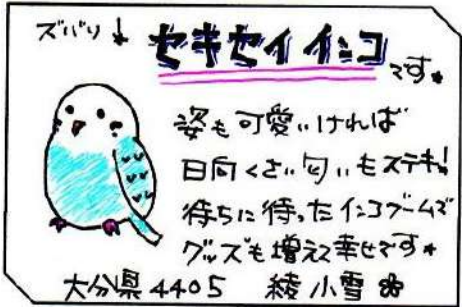 ズバリ! セキセイインコです★
姿も可愛いければ
日向くさい匂いもステキ!
待ちに待ったインコブームで
グッズも増えて幸せです★
大分県4405 綾小雪